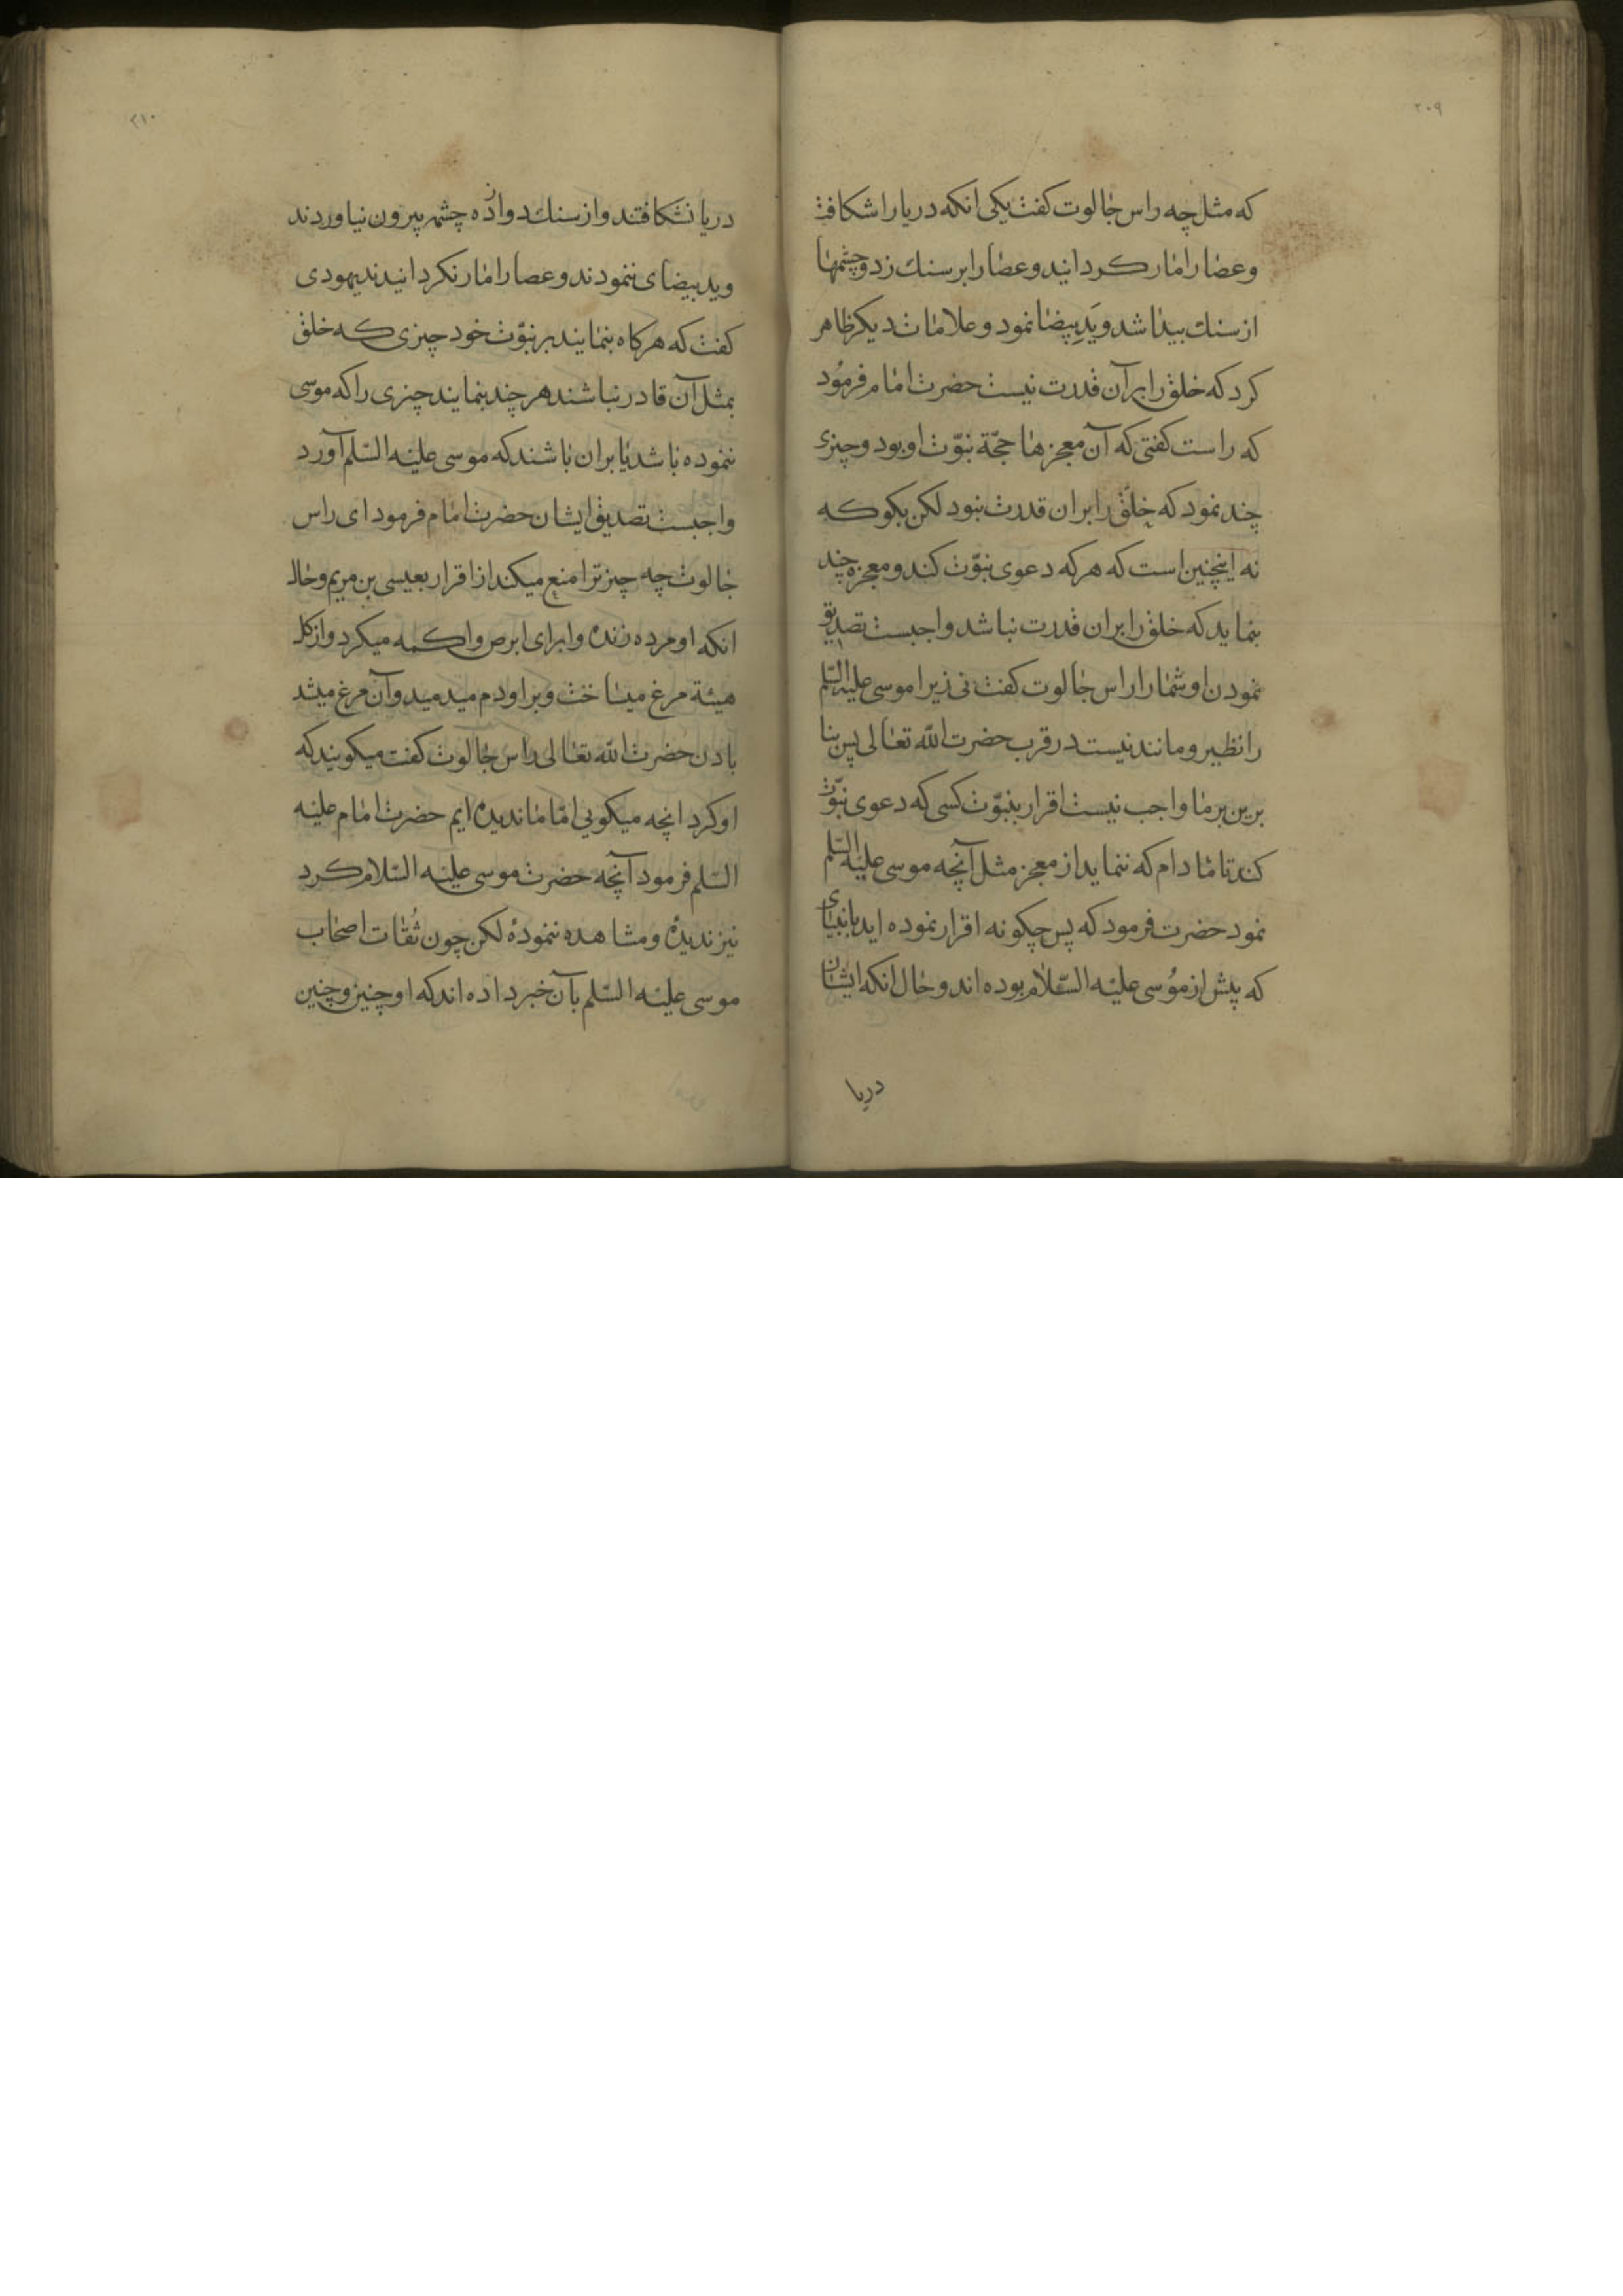 ۲۰۹
که مثل چه راس جالوت کفت یکی انکه دریا را شکافت
و عصا را مار کردانید و عصا را بر سنك زد و چشمها
از سنك پیدا شد و یَدِ بیضا نمود و علامات دیکر ظاهر
کرد که خلق را بر آن قدرت نیست حضرت امام فرمُود
که راست کفتی که آن معجزها حجّة نبوّت او بود و چیزی
چند نمود که خلق را بر ان قدرت نبود لکن بکو که
نه اینچنین است که هر که دعوی نبوّت کند و معجزه چند
بنماید که خلق را بر ان قدرت نباشد واجبست تصدیق
نمودن او شما را راس جالوت کفت نی زیرا موسی علیه السّلم
را نظیر و مانند نیست در قرب حضرت اللّه تعالی پس بنا
برین بر ما واجب نیست اقرار بنبوّت کسی که دعوی نبوّت
کند تا مادام که ننماید از معجز مثل آنچه موسی علیه السّلم
نمود حضرت فرمود که پس چکونه اقرار نموده اید بانبیای
که پیش از مُوسی علیه السّلام بوده اند و حال انکه ایشان
دریا
۲۱۰
دریا نشکافتند و از سنك دوازده چشمه بیرون نیاوردند
و ید بیضای ننمودند و عصا را مار نکردانیدند یهودی
کفت که هر کاه بنمایند بر نبوّت خود چیزی که خلق
بمثل آن قادر نباشند هر چند بنمایند چیزی را که موسی
ننموده باشد یا بران باشند که موسی علیه السّلم آورد
واجبست تصدیق ایشان حضرت امام فرمود ای راس
جالوت چه چیز ترا منع میکند از اقرار بعیسی بن مریم و حال
انکه او مرده زنده و ابرای ابرص و اکمه میکرد و از کل
هیئة مرغ میساخت و بر او دم میدمید و آن مرغ میشد
باذن حضرت اللّه تعالی راس جالوت کفت میکویند که
او کرد انچه میکویی امّا ما ندیده ایم حضرت امام علیه
السّلم فرمود آنچه حضرت موسی علیه السّلام کرد
نیز ندیدهٔ و مشاهده ننمودهٔ لکن چون ثُقات اصحاب
موسی علیه السّلم بآن خبر داده اند که او چنین و چنین